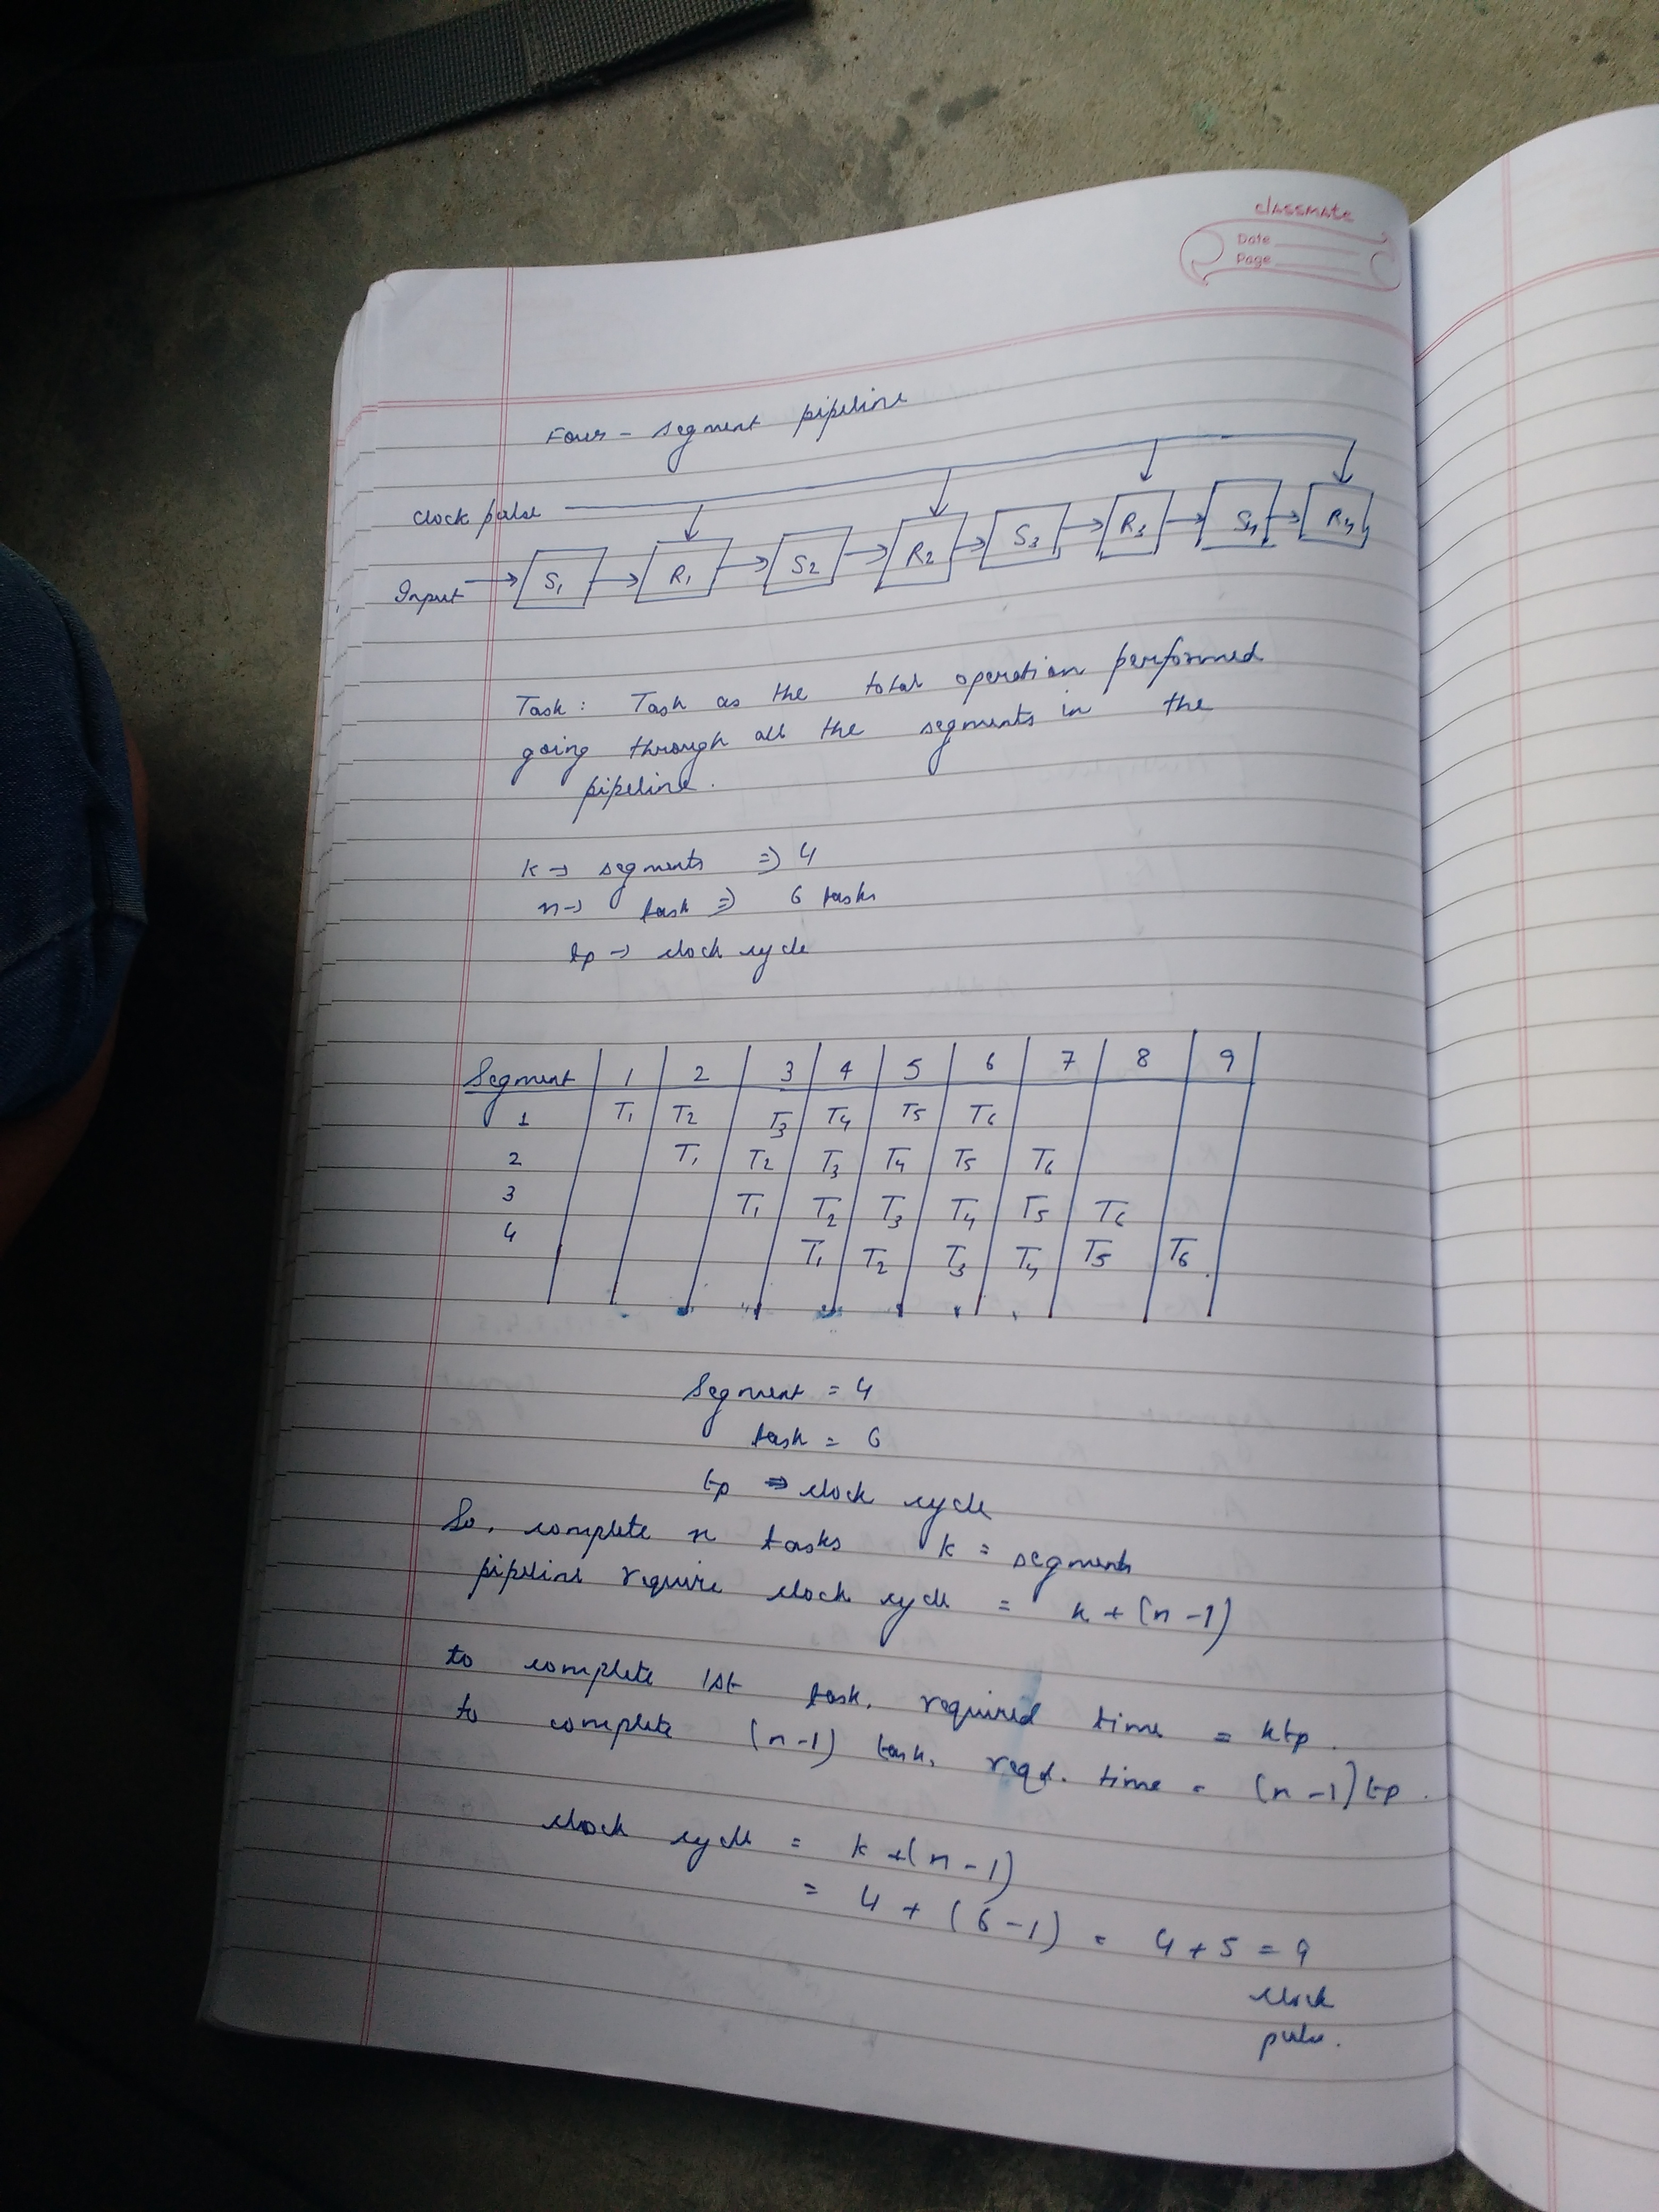 classmate
Date
Page
Four - segment pipeline
Clock pulse
Input S1 R1 S2 R2 S3 R3 S4 R4
Task : Task as the total operation performed
going through all the segments in the
pipeline.
k → segments ⇒ 4
n → task ⇒ 6 tasks
tp → clock cycle
Segment 1 2 3 4 5 6 7 8 9
1 T1 T2 T3 T4 T5 T6
2 T1 T2 T3 T4 T5 T6
3 T1 T2 T3 T4 T5 T6
4 T1 T2 T3 T4 T5 T6
Segment = 4
task = 6
tp ⇒ clock cycle
So, complete n tasks k = segments
pipeline require clock cycle = k + (n - 1)
to complete 1st task, required time = ktp.
to complete (n-1) task, reqd. time = (n-1)tp.
clock cycle = k + (n - 1)
= 4 + (6-1) = 4 + 5 = 9
clock
pulse.